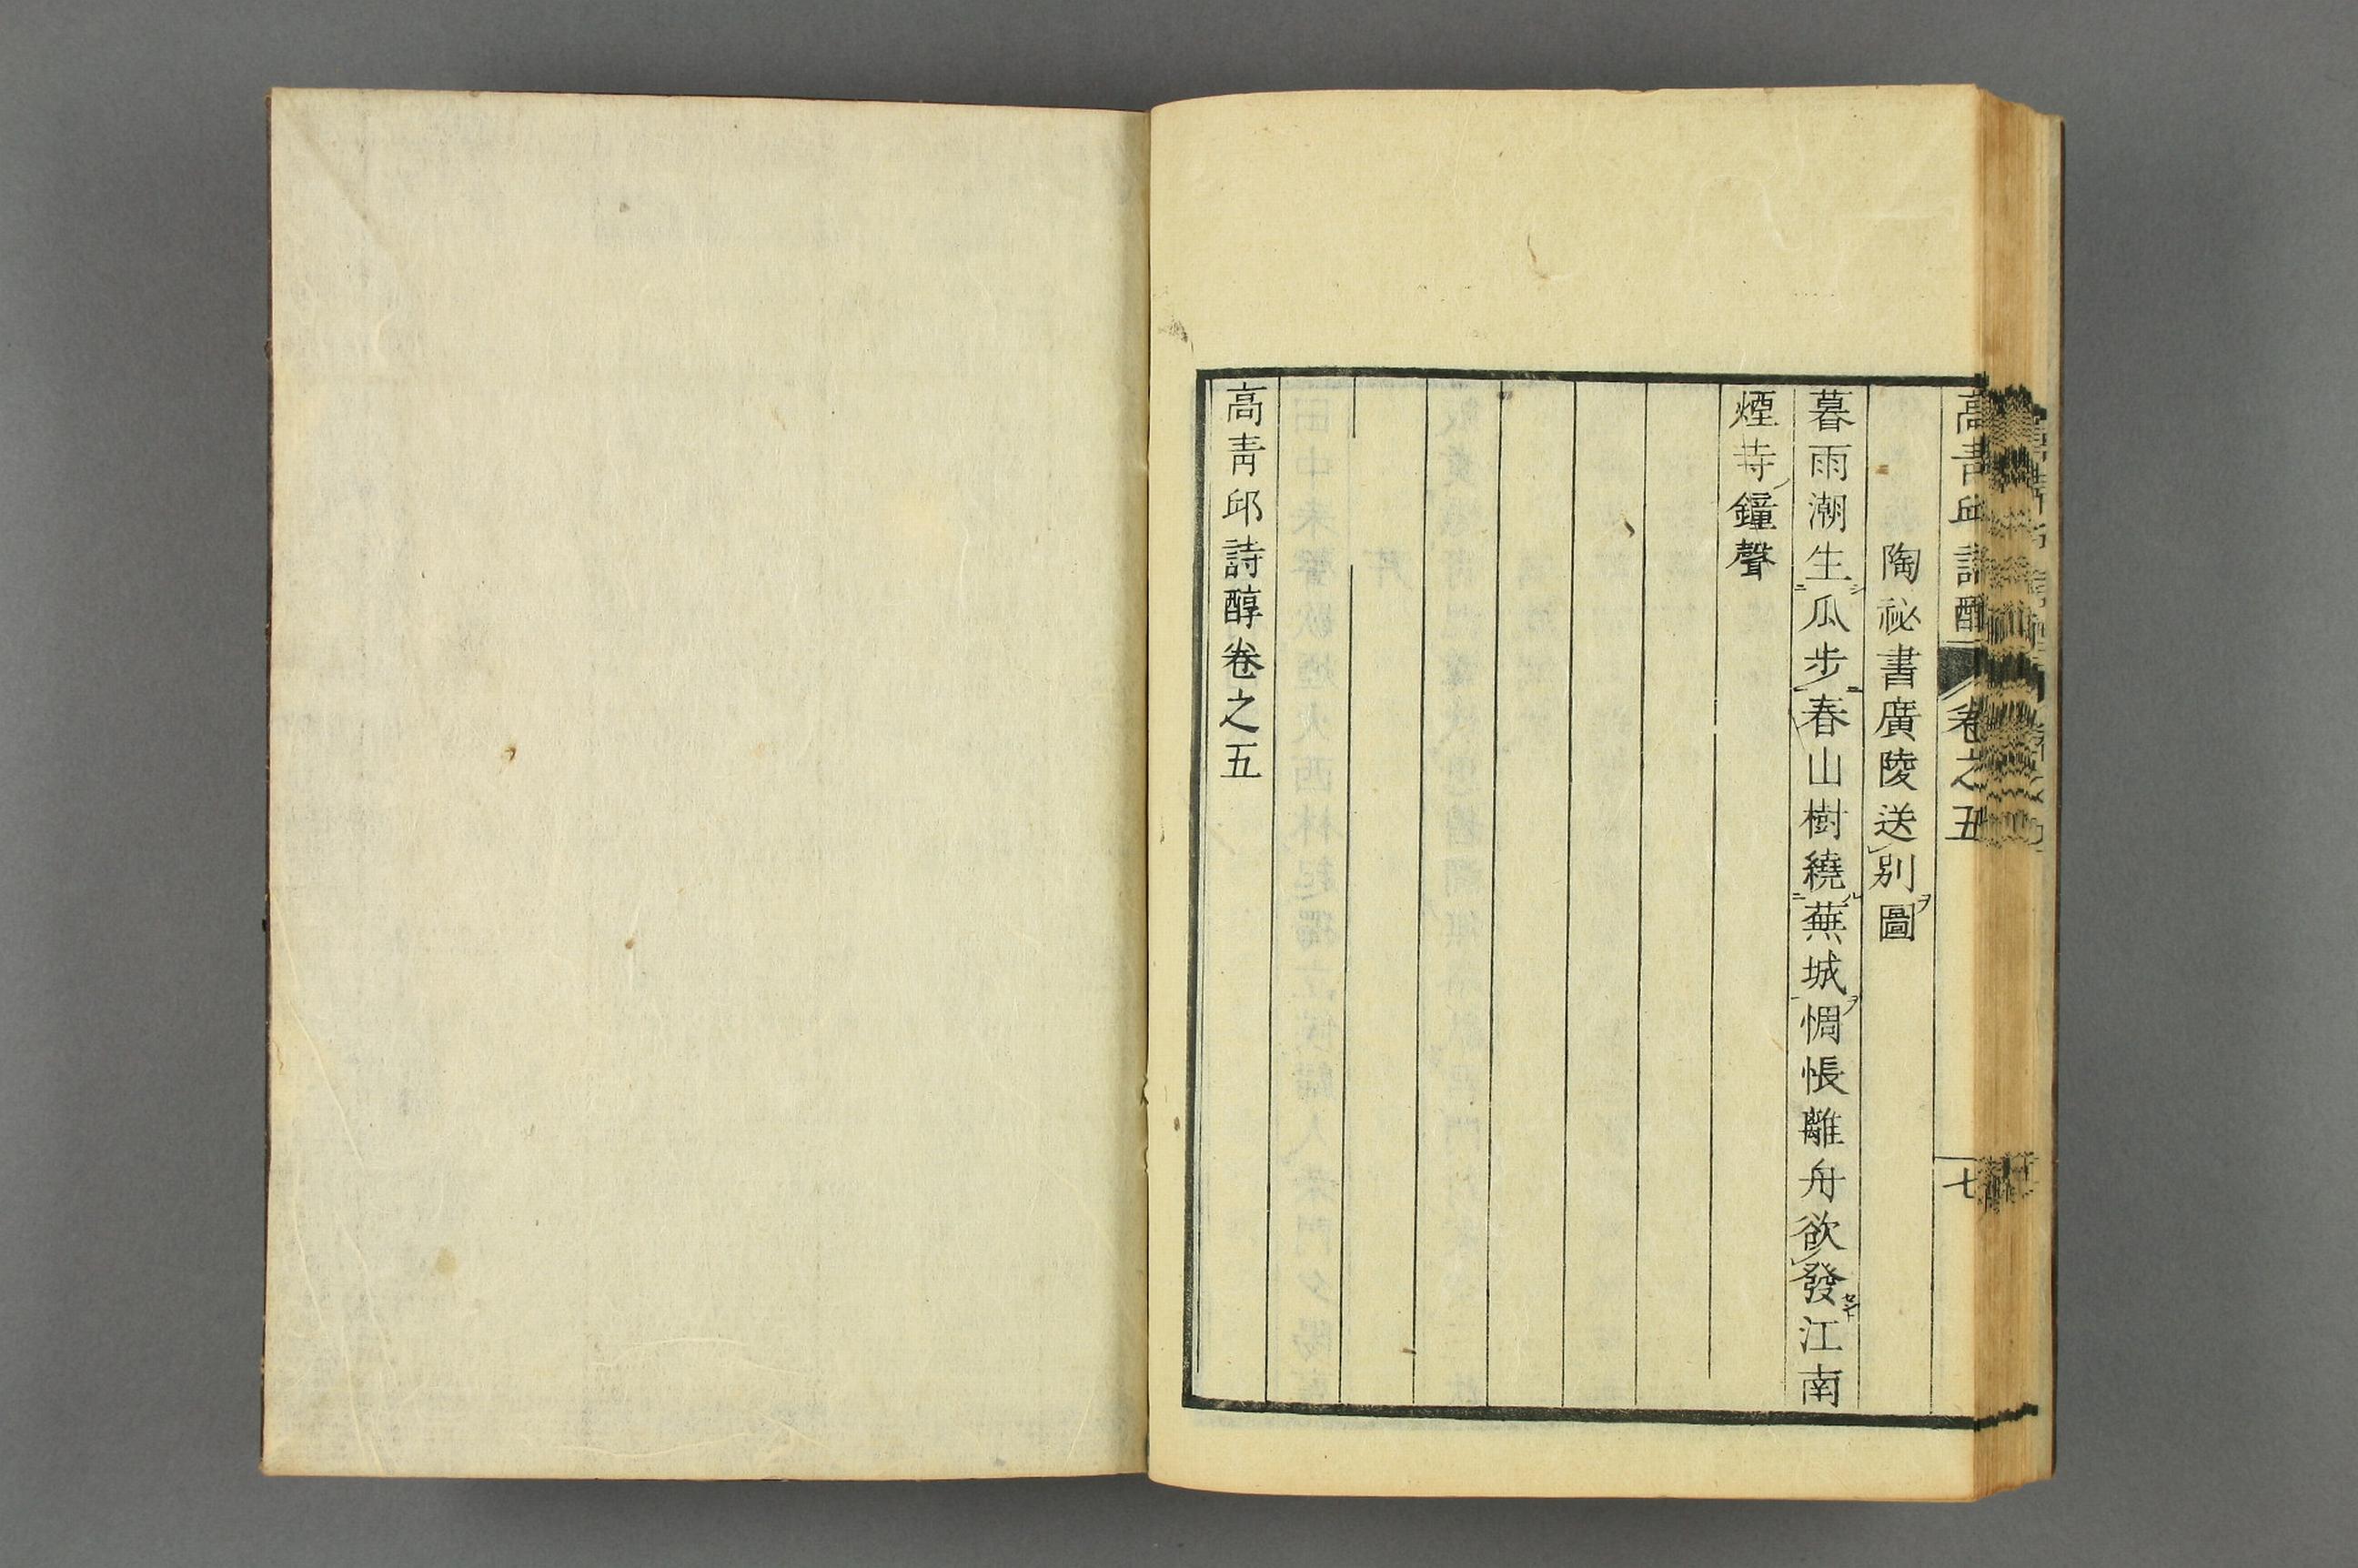 高青邱詩醇 卷之五 七
陶祕書廣陵送別圖
暮雨潮生瓜步春山樹繞蕪城惆悵離舟欲發江南
煙寺鐘聲
高青邱詩醇卷之五